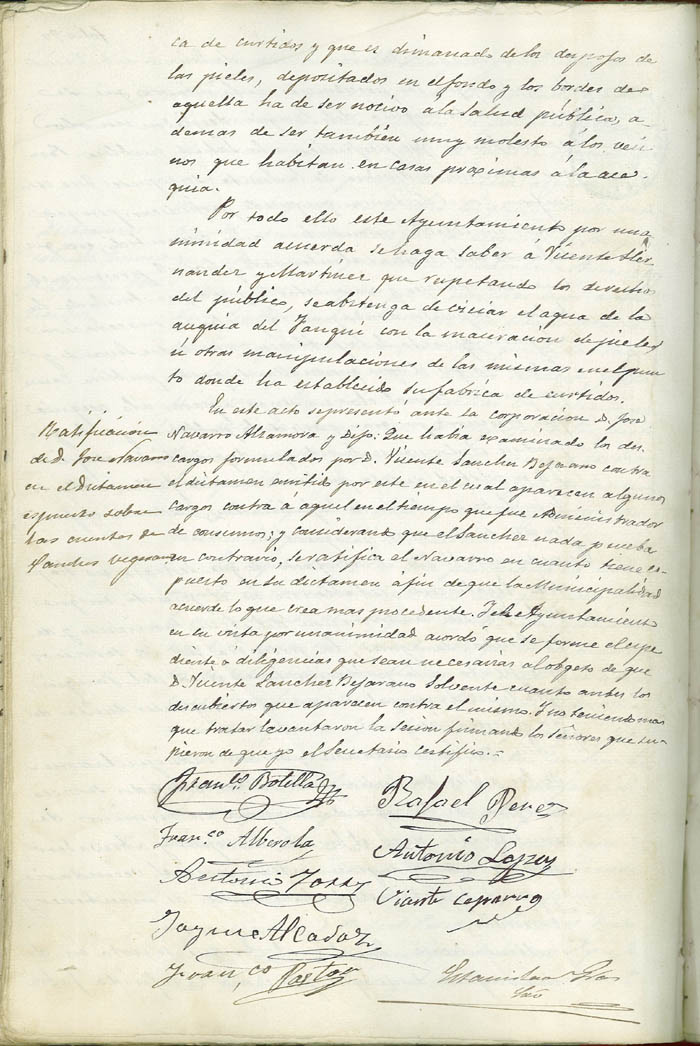 ca de curtidos y que es dimanado de los despojos de
las pieles, depositados en el fondo y los bordes de
aquella ha de ser nocivo á la salud pública, a
demas de ser tambien muy molesto á los veci
nos que habitan en casas proximas á la ace
quia.
Por todo ello este Ayuntamiento por una
nimidad acuerda se haga saber á Vicente Her
nandez y Martinez que respetando los derechos
del público, se abstenga de viciar el agua de la
acequia del con la maceracion de pieles
ú otras manipulaciones de las mismas en el pun
to donde ha establecido su fabrica de curtidos.
En este acto se presentó ante la corporacion D. José
Navarro Altamora y Dijo: Que habia examinado los des
cargos formulados por D. Vicente Sanchez Bejarano contra
el dictamen emitido por este en el cual aparecen algunos
cargos contra á aquel en el tiempo que fue Administrador
de consumos; y considerando que el Sanchez nada prueba
en contrario, se ratifica el Navarro en cuanto tiene es
puesto en su dictamen á fin de que la Municipalidad
acuerde lo que crea mas procedente. Y el Ayuntamiento
en su vista por unanimidad acordo que se forme el espe
diente ó diligencias que sean necesarias al obgeto de que
D. Vicente Sanchez Bejarano Solvente cuanto antes los
descubiertos que aparecen contra el mismo. Y no teniendo mas
que tratar levantaron la sesion firmando los Señores que su
pieron de que yo el Secretario certifico.=
Ratificacion
de D. Jose Navarro
en el Dictamen
espuesto sobre
las cuentas de
Sanchez
Franco. Botella
Rafael Perez
Franco Alberola
Antonio Lopez
Antonio
Vicente Caparros
Jayme
Franco Pastor
Estanislao
Srio